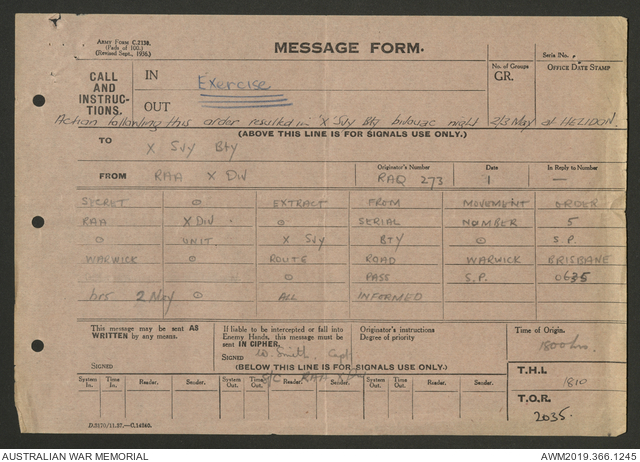 ARMY FORM C.2138.
(Pads of 100.)
(Revised Sept., 1936.)
MESSAGE FORM.
Serial No.
CALL AND INSTRUC- TIONS.
IN
Exercise
OUT
No. of Groups
GR.
OFFICE DATE STAMP
Action following this order resulted in 'X' Svy Bty bivouac night 2/3 May at HELIDON.
(ABOVE THIS LINE IS FOR SIGNALS USE ONLY.)
TO
X Svy Bty
FROM
RAA X DIV
Originator's Number
RAQ 273
Date
1
In Reply to Number
—
SECRET O EXTRACT FROM MOVEMENT ORDER
RAA X DIV. O SERIAL NUMBER 5
O UNIT. X Svy BTY O S.P.
WARWICK O ROUTE ROAD WARWICK BRISBANE
O PASS S.P. 0635
hrs 2 May O ALL INFORMED
This message may be sent AS WRITTEN by any means.
SIGNED
If liable to be intercepted or fall into Enemy Hands, this message must be sent IN CIPHER.
SIGNED W. Smith Capt
Originator's instructions
Degree of priority
Time of Origin.
1800hrs.
(BELOW THIS LINE IS FOR SIGNALS USE ONLY.)
RAA X Div
System In. Time In. Reader. Sender. System Out. Time Out. Reader. Sender. System Out. Time Out. Reader. Sender.
T.H.I.
1810
T.O.R.
2035.
D.3170/11.37.—C.14240.
AUSTRALIAN WAR MEMORIAL
AWM2019.366.1245